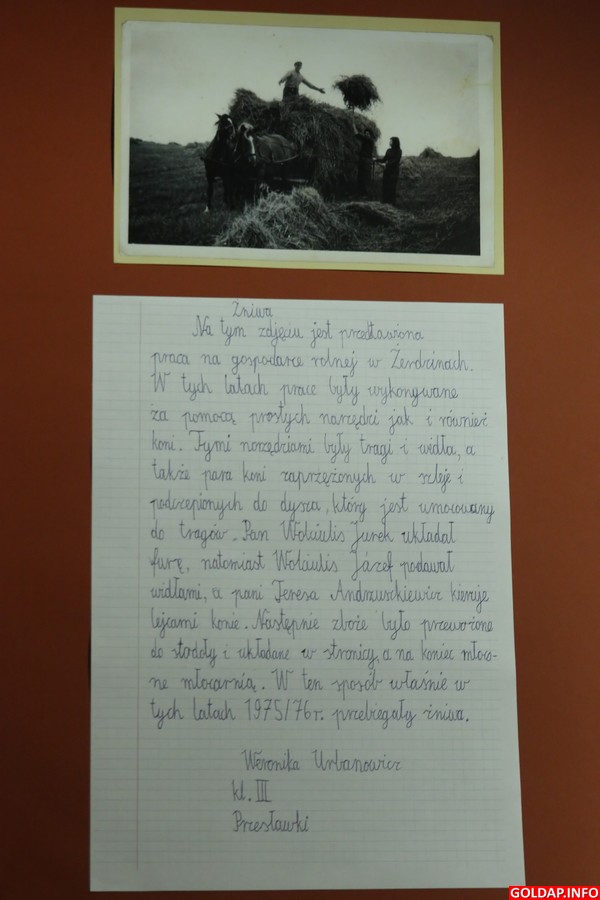 Żniwa
Na tym zdjęciu jest przedstawiona
praca na gospodarce rolnej w Żerdzinach.
W tych latach prace były wykonywane
za pomocą prostych narzędzi jak i również
koni. Tymi narzędziami były tragi i widła, a
także para koni zaprzężonych w szleje i
podczepionych do dyszla, który jest umocowany
do tragów. Pan Wolciulis Jurek układał
furę, natomiast Wolciulis Józef podawał
widłami, a pani Teresa Andrzuszkiewicz kieruje
lejcami konie. Następnie zboże było przewożone
do stodoły i układane w stronicy, a na koniec młoco-
ne młocarnią. W ten sposób właśnie w
tych latach 1975/76r. przebiegały żniwa.
Weronika Urbanowicz
kl. III
Przesławki
GOLDAP.INFO